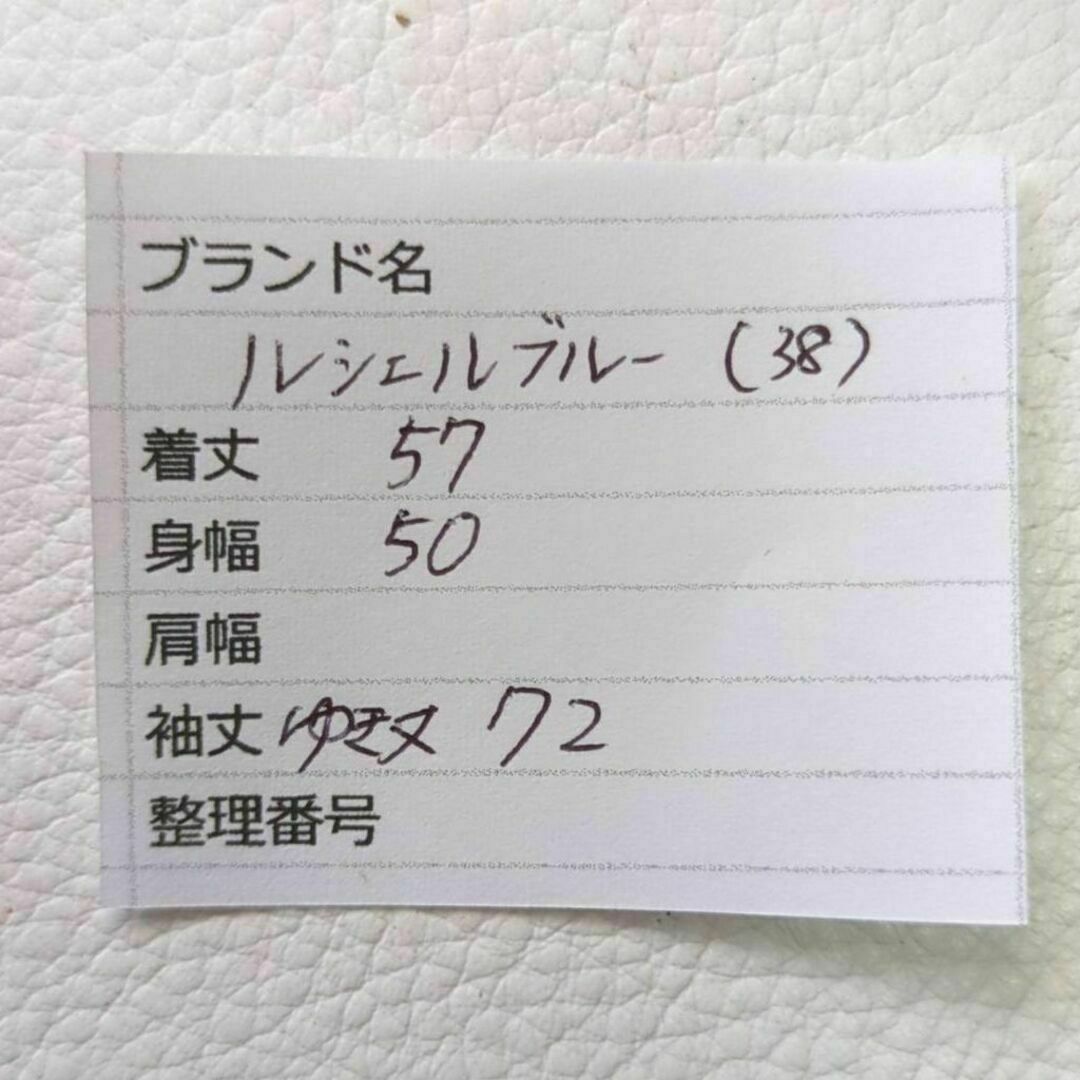 ブランド名
ルシェルブルー (38)
着丈 57
身幅 50
肩幅
袖丈 ゆき丈 72
整理番号